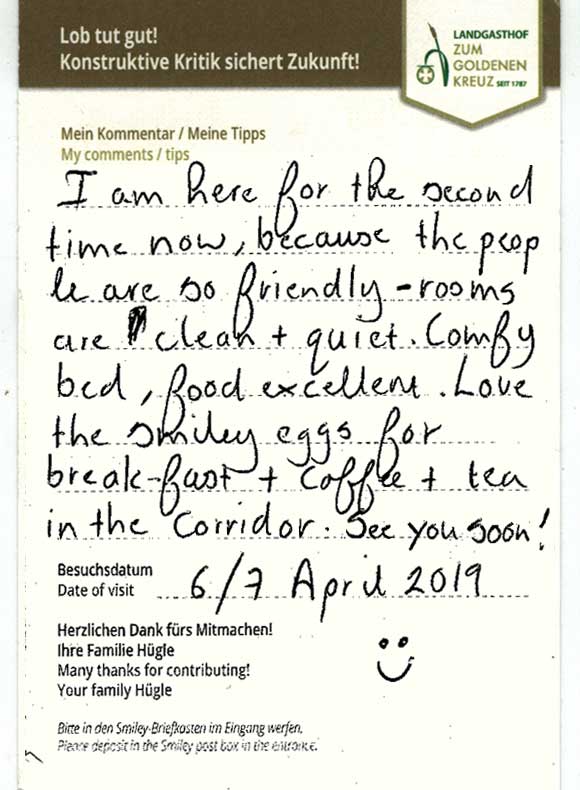 Lob tut gut!
Konstruktive Kritik sichert Zukunft!
LANDGASTHOF
ZUM
GOLDENEN
KREUZ SEIT 1787
Mein Kommentar / Meine Tipps
My comments / tips
I am here for the second
time now, because the peop
le are so friendly - rooms
are clean + quiet. Comfy
bed, food excellent. Love
the smiley eggs for
break-fast + coffee + tea
in the corridor. See you soon!
Besuchsdatum
Date of visit
6/7 April 2019
Herzlichen Dank fürs Mitmachen!
Ihre Familie Hügle
Many thanks for contributing!
Your family Hügle
Bitte in den Smiley-Briefkasten im Eingang werfen.
Please deposit in the Smiley post box in the entrance.